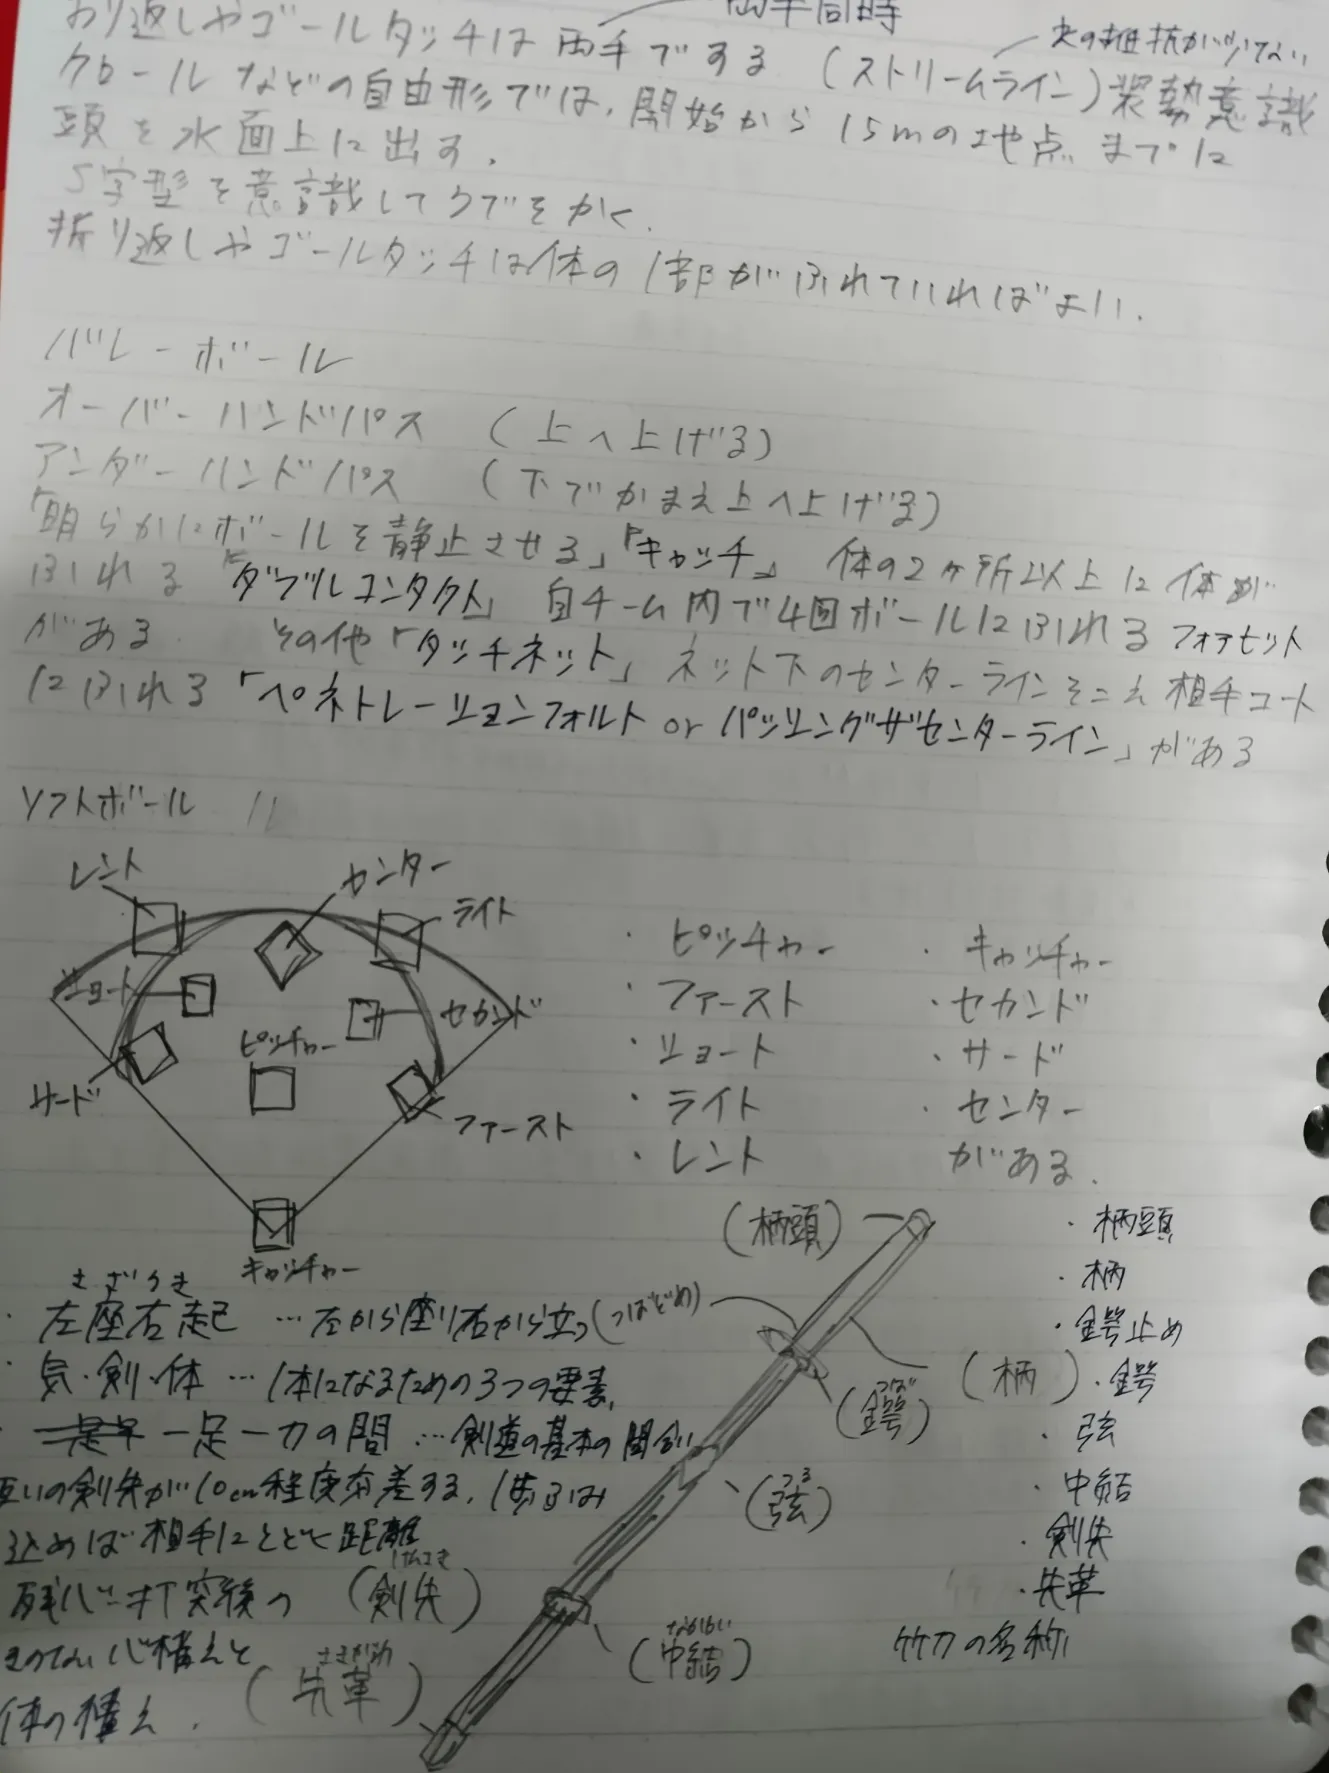 両手同時
おり返しやゴールタッチは両手でする (ストリームライン)姿勢意識
水の抵抗が少ない
クロールなどの自由形では、開始から15mの地点までに
頭を水面上に出す。
S字型を意識してウデをかく.
折り返しやゴールタッチは体の1部がふれていればよい.
バレーボール
オーバーハンドパス (上へ上げる)
アンダーハンドパス (下でかまえ上へ上げる)
「明らかにボールを静止させる」「キャッチ」 体の2ヶ所以上に体が
ふれる「ダブルコンタクト」 自チーム内で4回ボールにふれる フォアヒット
がある. その他「タッチネット」 ネット下のセンターラインをこえ相手コート
にふれる「ペネトレーションフォルト or パッシングザセンターライン」がある
ソフトボール
レント
センター
ライト
ショート
セカンド
ピッチャー
サード
ファースト
キャッチャー
・ピッチャー ・キャッチャー
・ファースト ・セカンド
・ショート ・サード
・ライト ・センター
・レント がある.
さざうき
・左座右起 …左から座り右から立つ
・気・剣・体 …1本になるための3つの要素
・一足一刀の間 …剣道の基本の間合い
互いの剣先が10cm程度交差する、1歩ふみ
込めば相手にとどく距離
残心…打突後の
体の構え.
(柄頭)
(つばどめ)
(柄)
つば
(鍔)
つる
(弦)
なかゆい
(中結)
けんさき
(剣先)
さきがわ
(先革)
・柄頭
・柄
・鍔止め
・鍔
・弦
・中結
・剣先
・先革
竹刀の名称